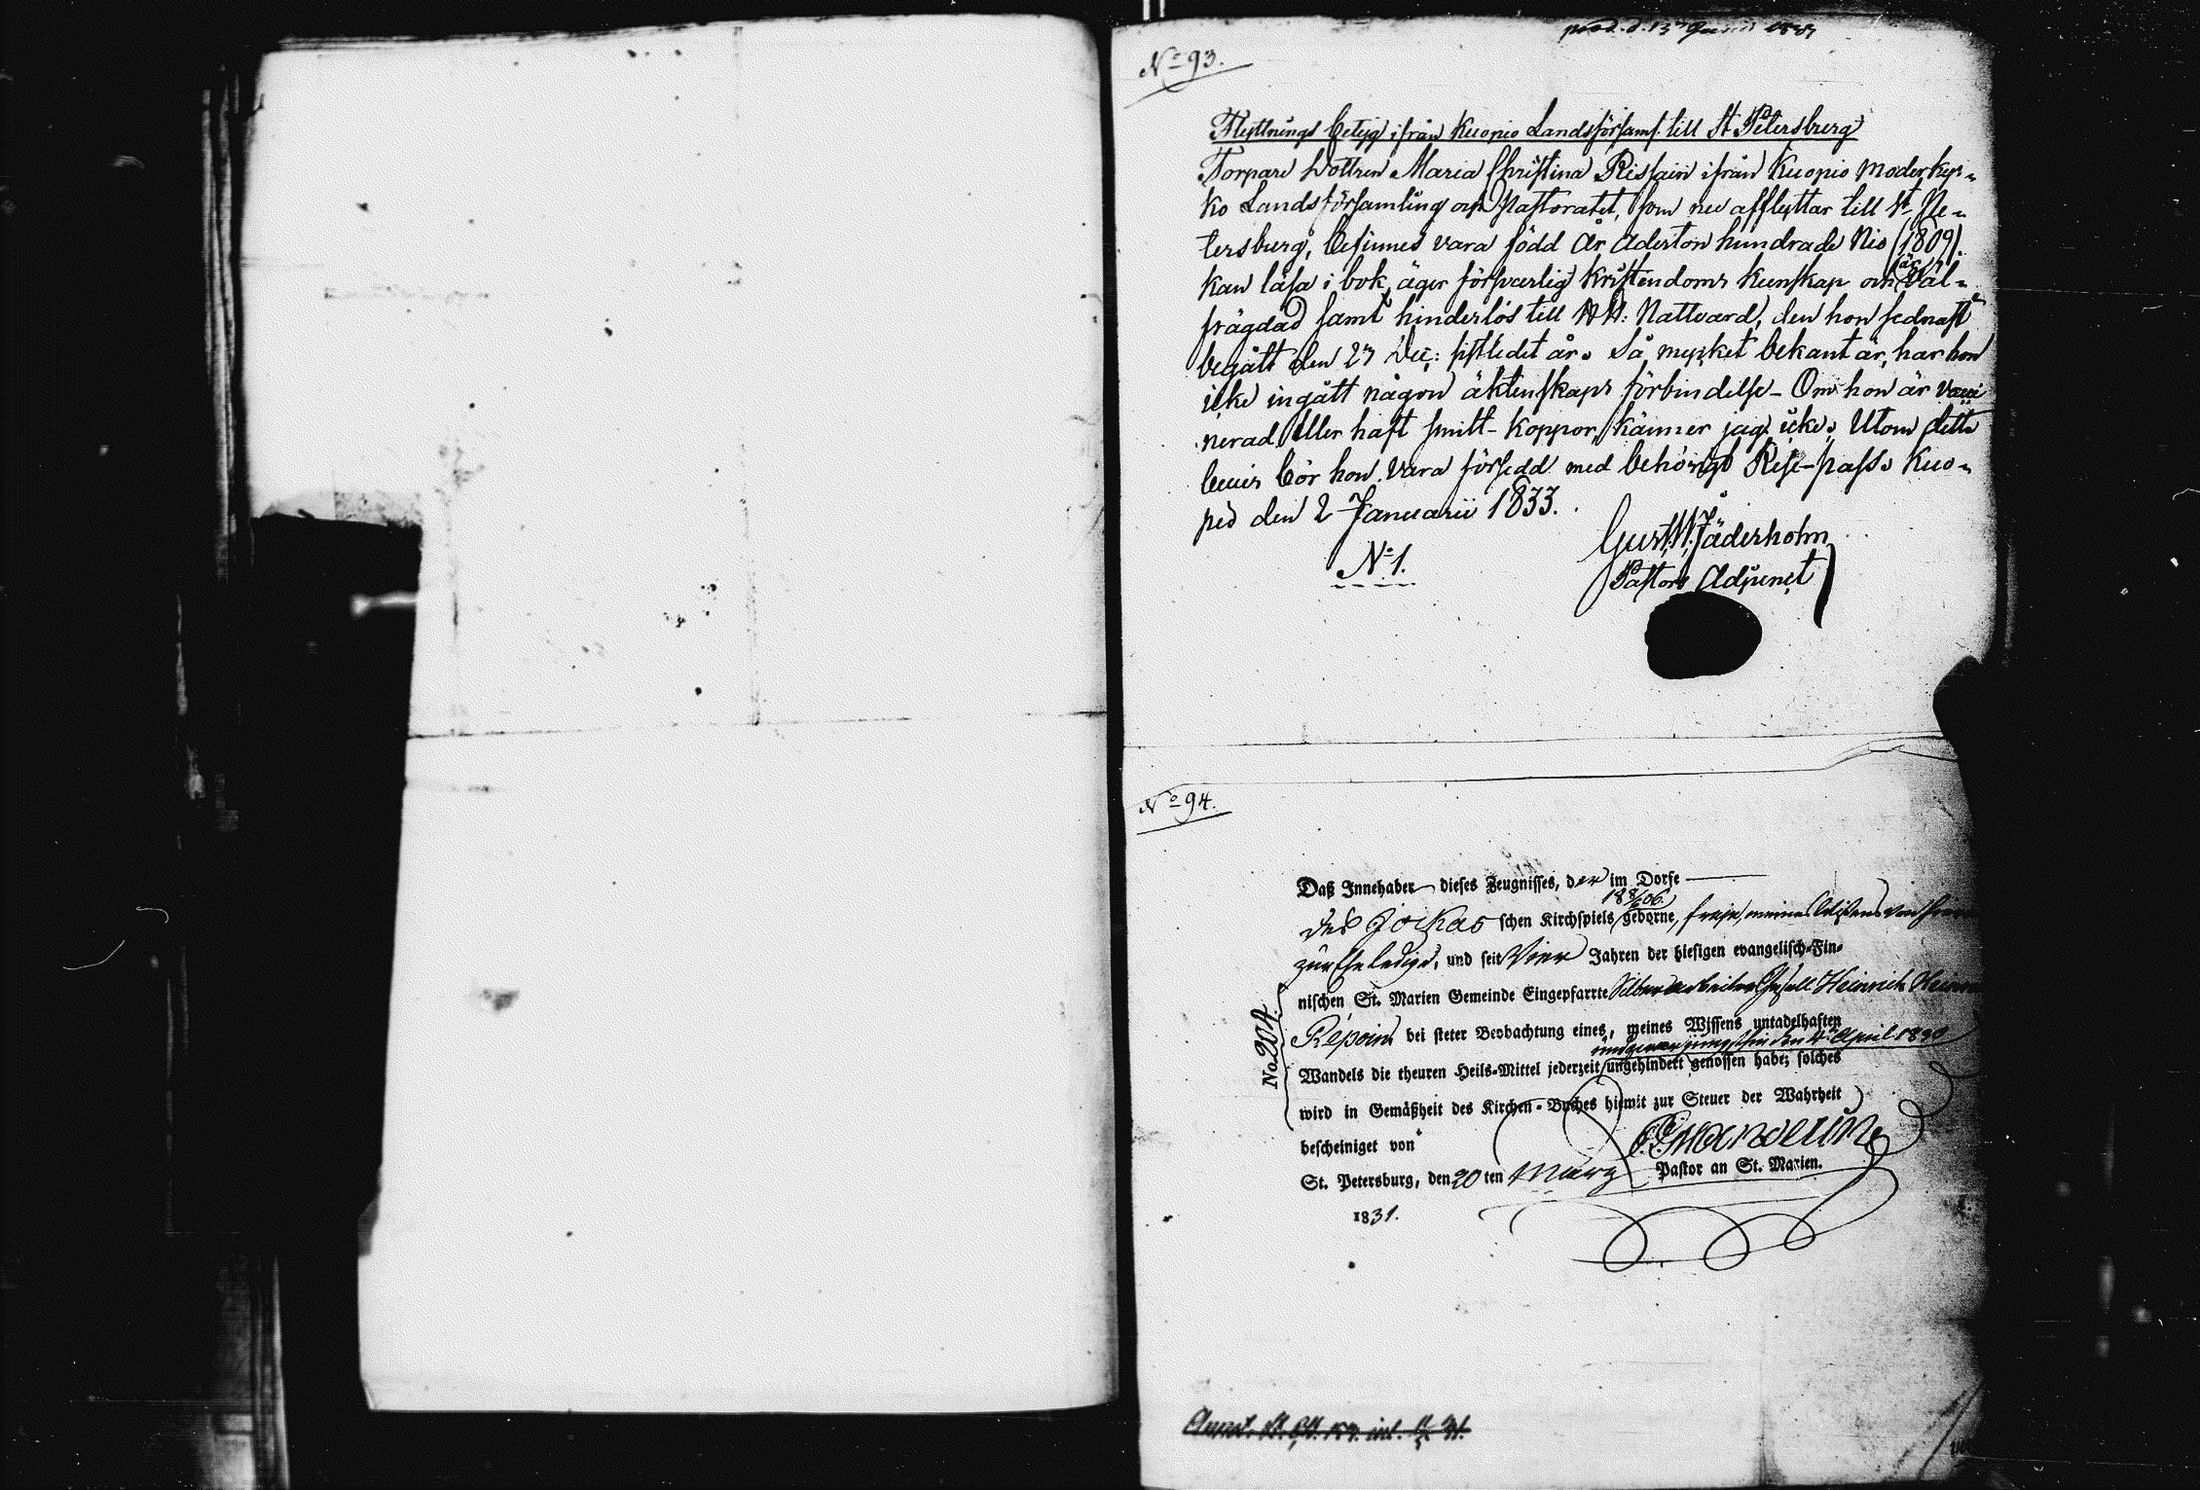 No 93.
Flyttnings Betyg ifrån Kuopio Landsförsaml. till St Petersburg
Torpare Dottren Maria Christina Rissain ifrån Kuopio moderkyr-
ko Landsförsamling och Pastoratet, som nu afflyttar till St. Pe-
tersburg, befinnes vara född År Aderton hundrade Nio (1809).
kan läsa i bok, äger försvarlig Kristendoms Kunskap och är Väl-
frägdad samt hinderlös till HH: Nattvard, den hon sednast
begått den 27 Dec: sistledet år. Så mycket bekant är, har hon
icke ingått någon äktenskaps förbindelse - Om hon är vacci
nerad eller haft smitt-koppor, känner jag icke. Utom detta
bevis bör hon vara försedd med behörigt Rese-pass. Kuo-
pio den 2 Januarii 1833.
Gust. W. Jäderholm
No 1.
Pastors Adjunct
No 94.
Daß Innehaber dieses Zeugnisses, der im Dorfe
18 8/6 06
des Jockas schen Kirchspiels geborne, freie, meines Wissens von
zur Ehe ledige, und seit Vier Jahren der hiesigen evangelisch-Fin-
nischen St. Marien Gemeinde Eingepfarrte Silberarbeiter Gesell Heinrich
No. 204.
Repoin bei steter Beobachtung eines, meines Wissens untadelhaften
den 4 April 1830
Wandels die theuren Heils-Mittel jederzeit ungehindert genossen habe; solches
wird in Gemäßheit des Kirchen-Buches hiemit zur Steuer der Wahrheit
bescheiniget von
St. Petersburg, den 20 ten März Pastor an St. Marien.
1831.